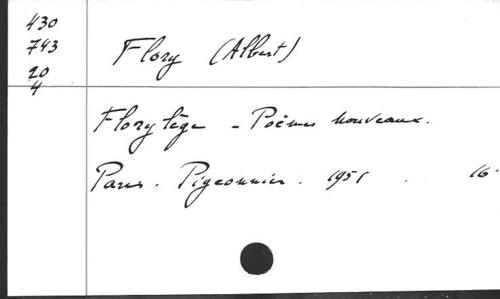 430
743
20
4
Flory (Albert)
Florylège - Poèmes nouveaux.
Paris. Pigeonnier. 1951. 16.